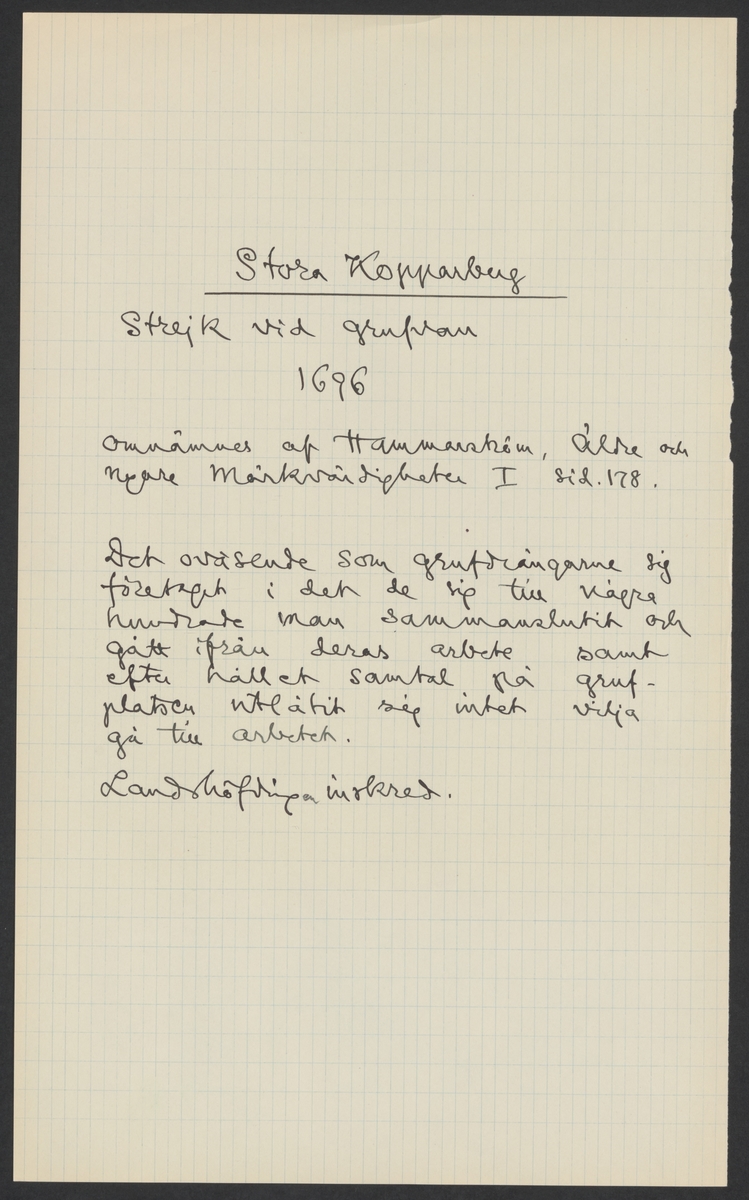 Stora Kopparberg
Strejk vid grufvan
1696
omnämnes af Hammarström, Äldre och
Nyare Märkvärdigheter I sid. 178.
Det oväsende som grufdrängarne sig
företaget i det de sig till några
hundrade man sammanslutit och
gått ifrån deras arbete samt
efter hållet samtal på gruf-
platsen utlåtit sig intet vilja
gå till arbetet.
Landshöfdingen inskred.